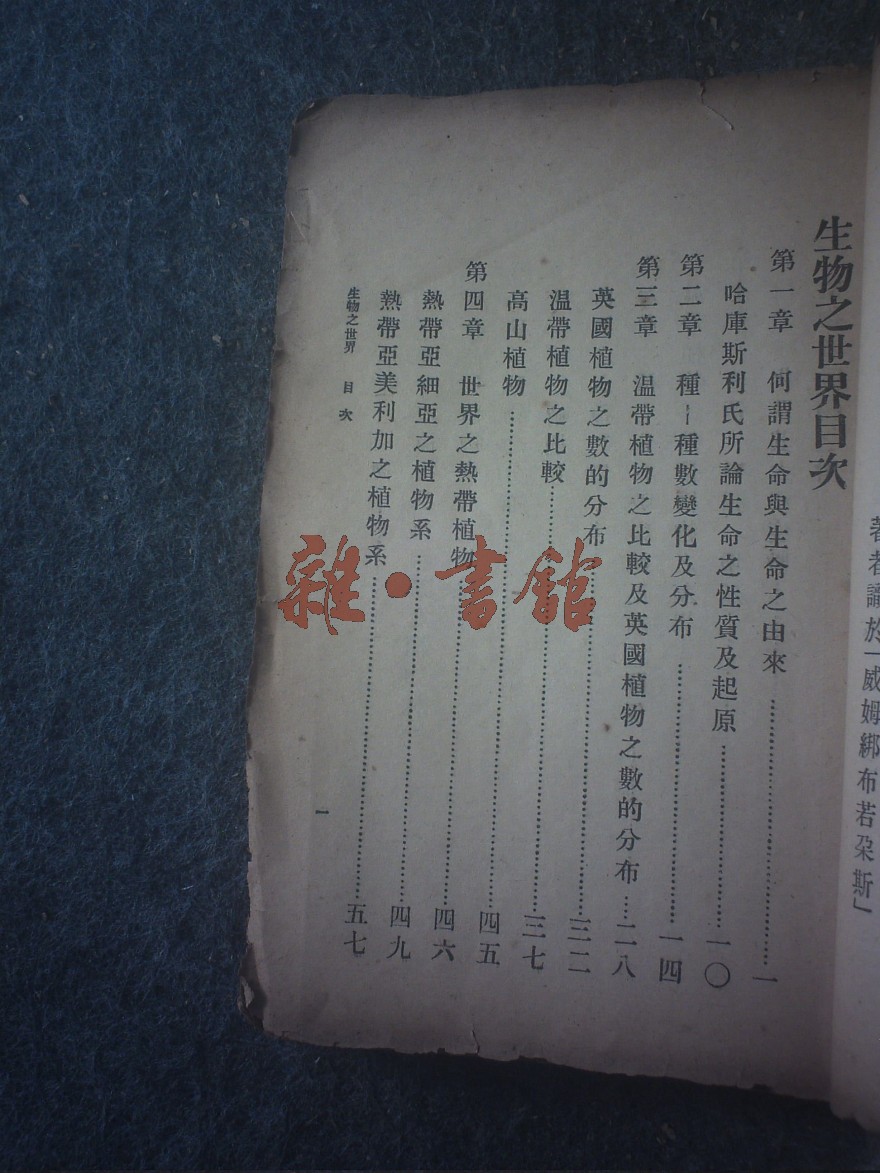 著者識於「威姆綁布若朶斯」
生物之世界目次
第一章 何謂生命與生命之由來……一
哈庫斯利氏所論生命之性質及起原……一〇
第二章 種—種數變化及分布……一四
第三章 温帶植物之比較及英國植物之數的分布……二八
英國植物之數的分布……三二
温帶植物之比較……三七
高山植物……四五
第四章 世界之熱帶植物……四六
熱帶亞細亞之植物系……四九
熱帶亞美利加之植物系……五七
生物之世界 目次
一
雜·書館